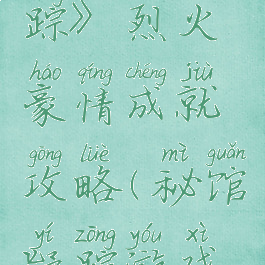 踪》 烈火
háo qíng chéng jiù
豪情成就
gōng lüè mì guǎn
攻略(秘馆
yí zōng yóu xì
疑踪游戏